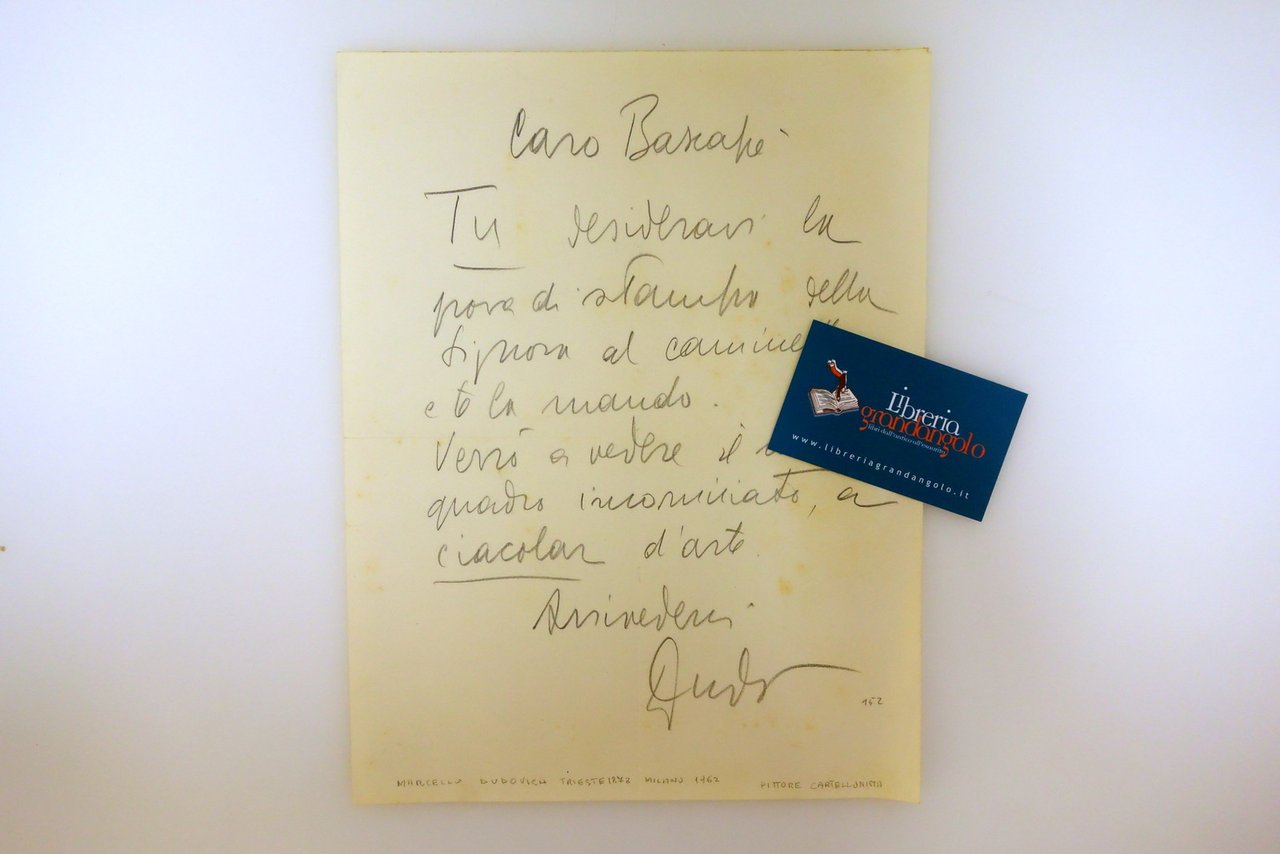 Caro Bascapè
Tu desideravi la
prova di stampa della
Signora al camine
e te la mando.
Verrò a vedere il
quadro incorniciato, a
ciacolar d'arte.
Arrivederci
Dudo
152
MARCELLO DUDOVICH TRIESTE 1878 MILANO 1962 PITTORE CARTELLONISTA
Libreria
grandangolo
libri dall'antico all'esaurito
www.libreriagrandangolo.it